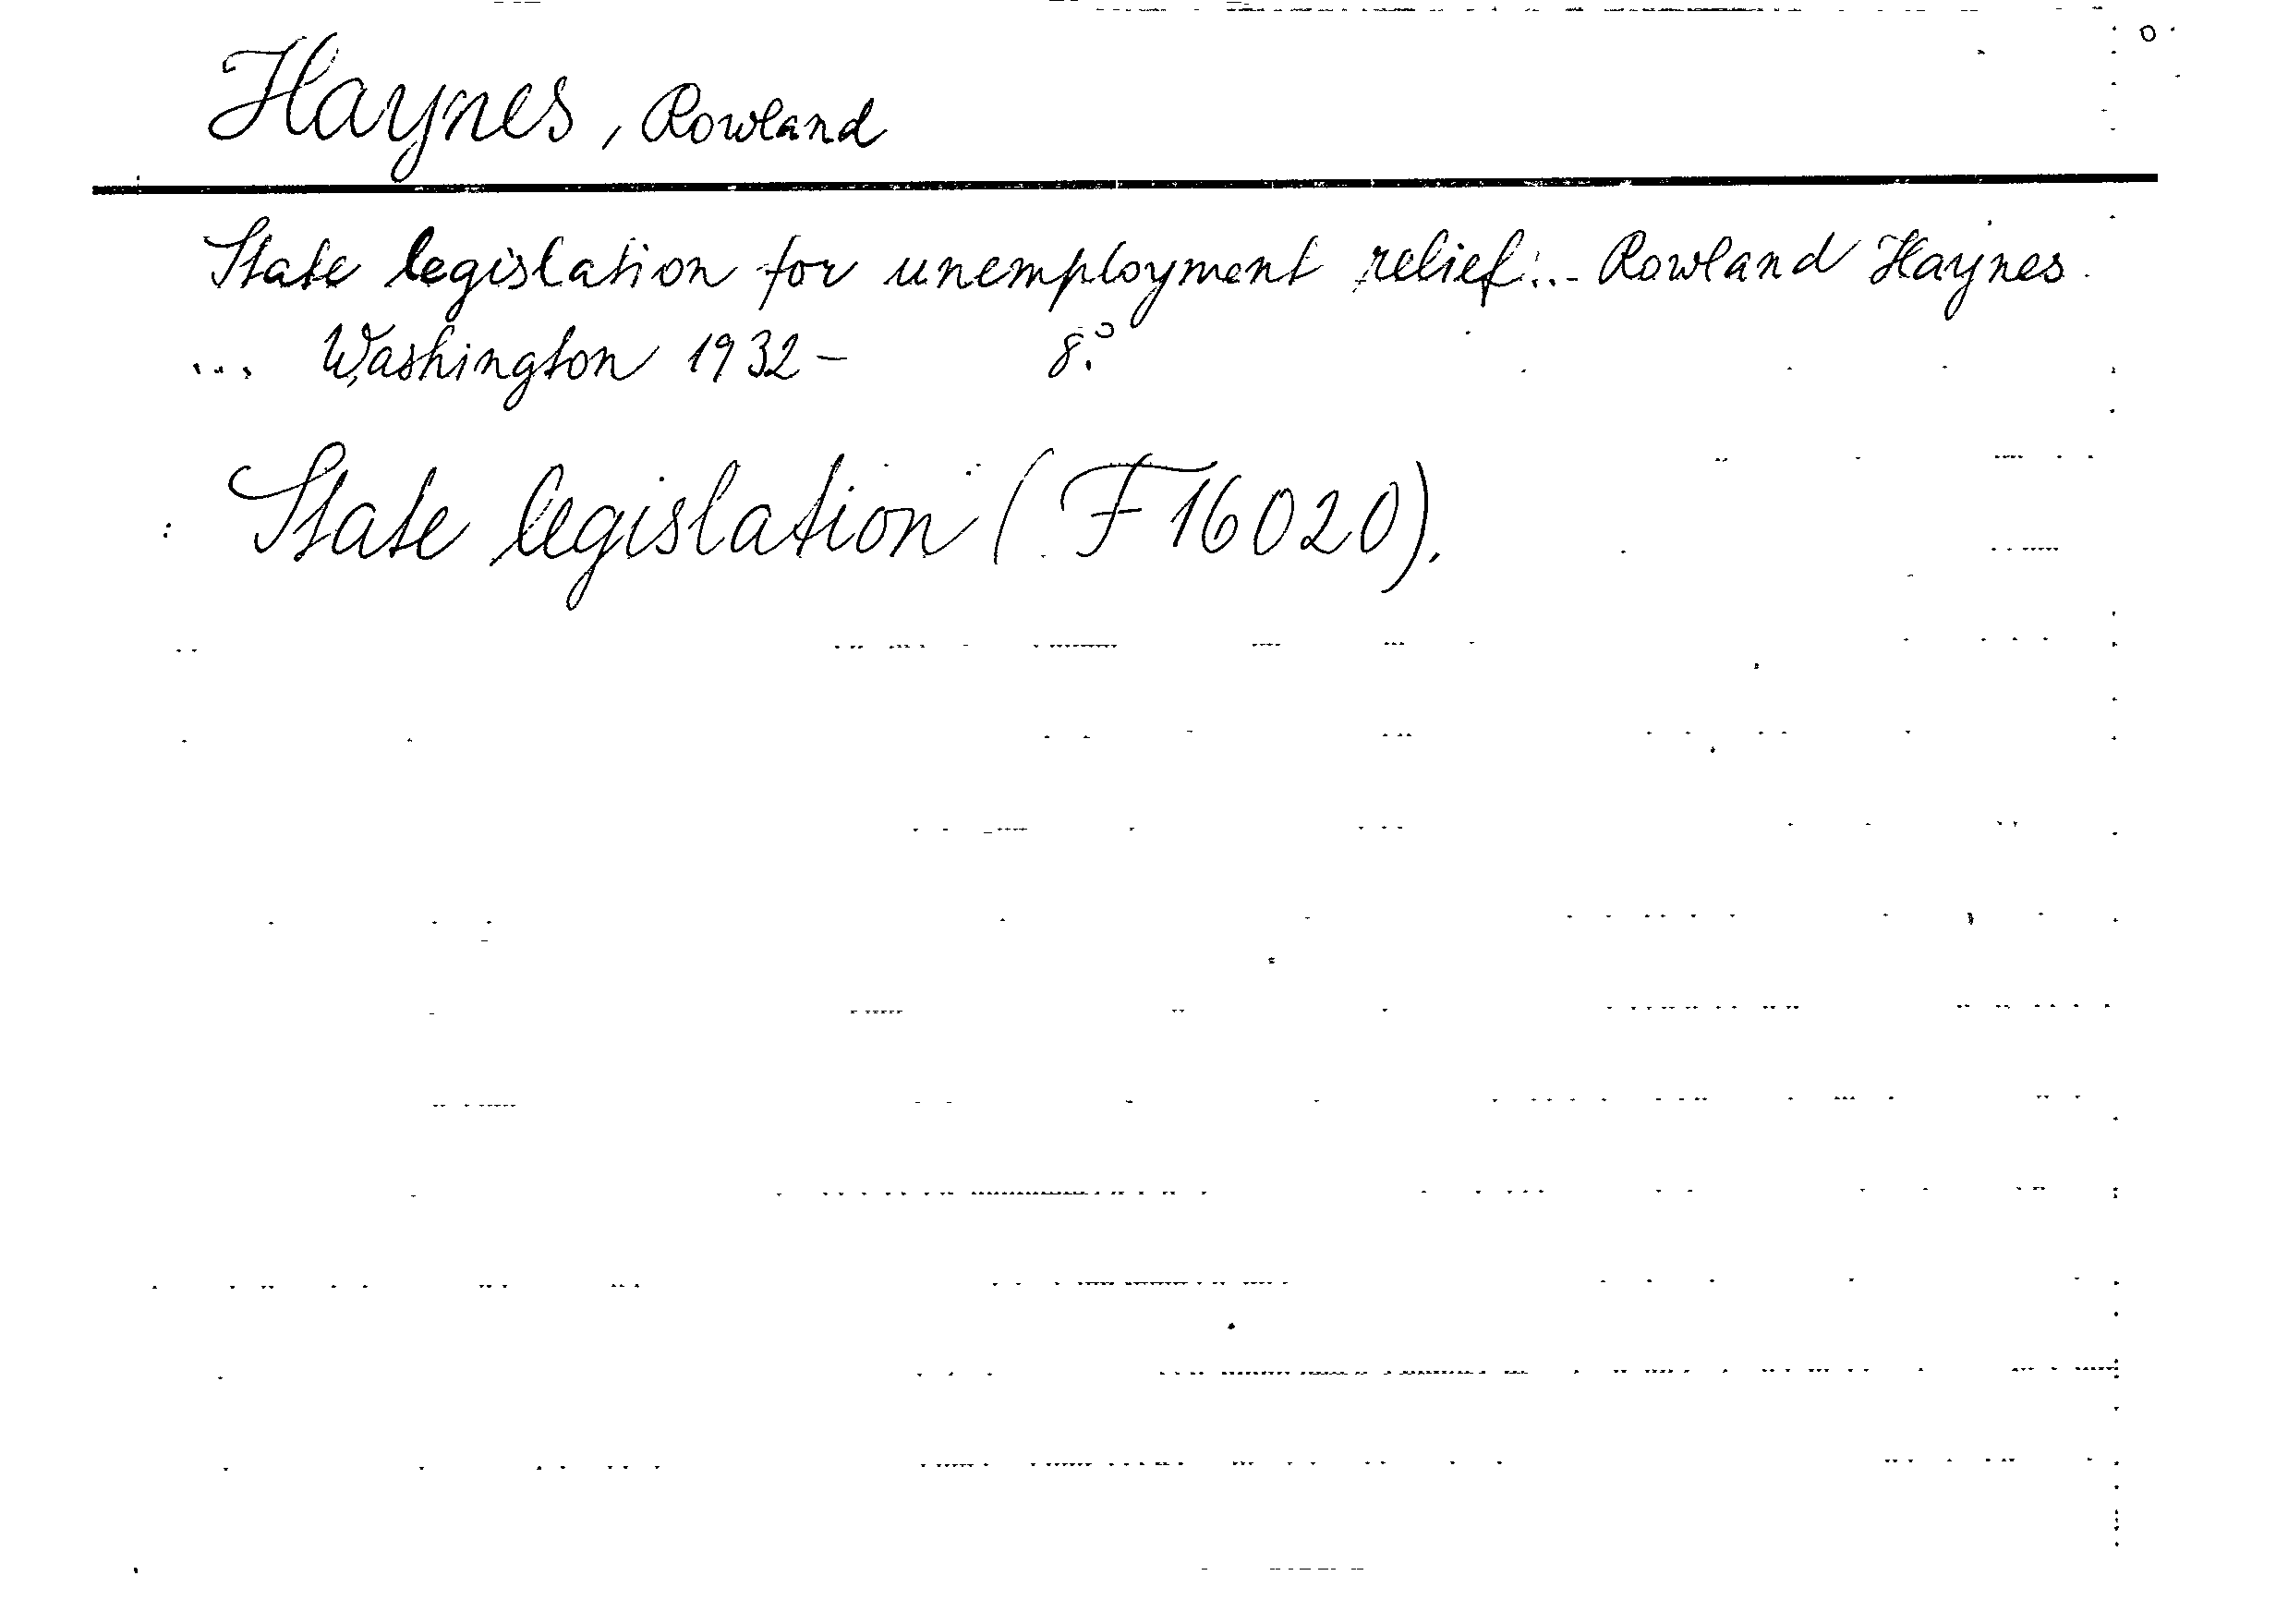 Haynes, Rowland
State legislation for unemployment relief... Rowland Haynes.
... Washington 1932- 8.°
State legislation (F 16020).